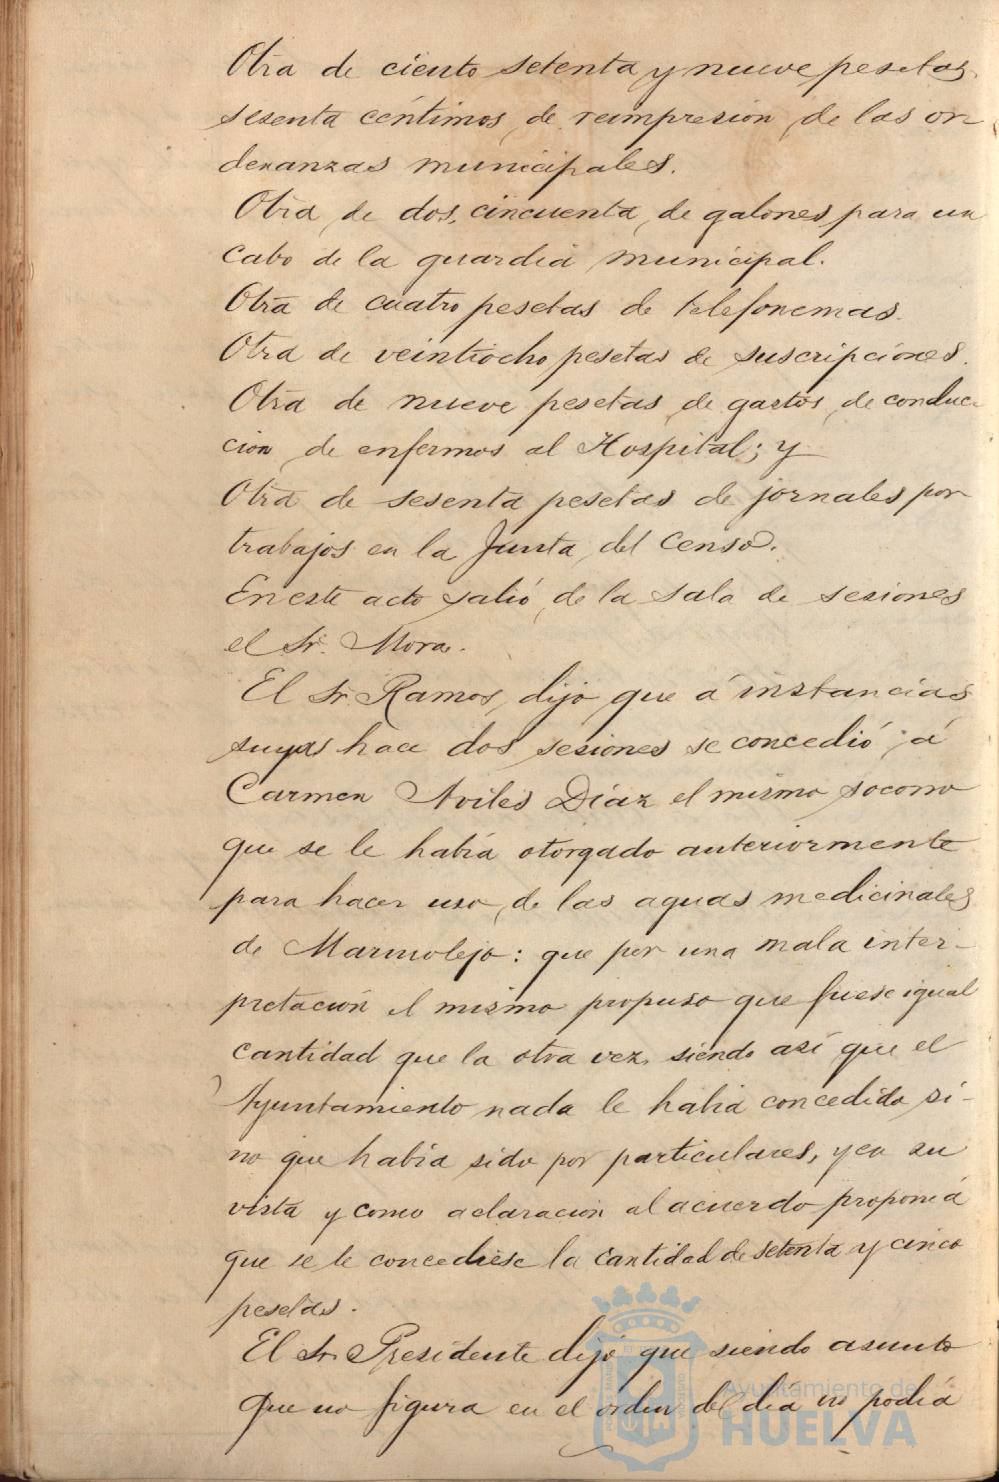 Otra de ciento setenta y nueve pesetas,
sesenta céntimos de reimpresion de las or
denanzas municipales.
Otra de dos, cincuenta, de galones para un
cabo de la guardia municipal.
Otra de cuatro pesetas de telefonemas.
Otra de veintiocho pesetas de suscripciones.
Otra de nueve pesetas de gastos de conduc-
cion de enfermos al Hospital; y
Otra de sesenta pesetas de jornales por
trabajos en la Junta del Censo.
En este acto salió de la sala de sesiones
el Sr. Mora.
El Sr. Ramos, dijo que á instancias
suyas hace dos sesiones se concedió á
Carmen Aviles Díaz el mismo socorro
que se le había otorgado anteriormente
para hacer uso de las aguas medicinales
de Marmolejo: que por una mala inter-
pretación el mismo propuso que fuese igual
cantidad que la otra vez, siendo así que el
Ayuntamiento nada le había concedido si-
no que había sido por particulares, y en su
vista y como aclaracion al acuerdo proponía
que se le concediese la cantidad de setenta y cinco
pesetas.
El Sr. Presidente dijo que siendo asunto
que no figura en el orden del día no podía
Ayuntamiento de
HUELVA